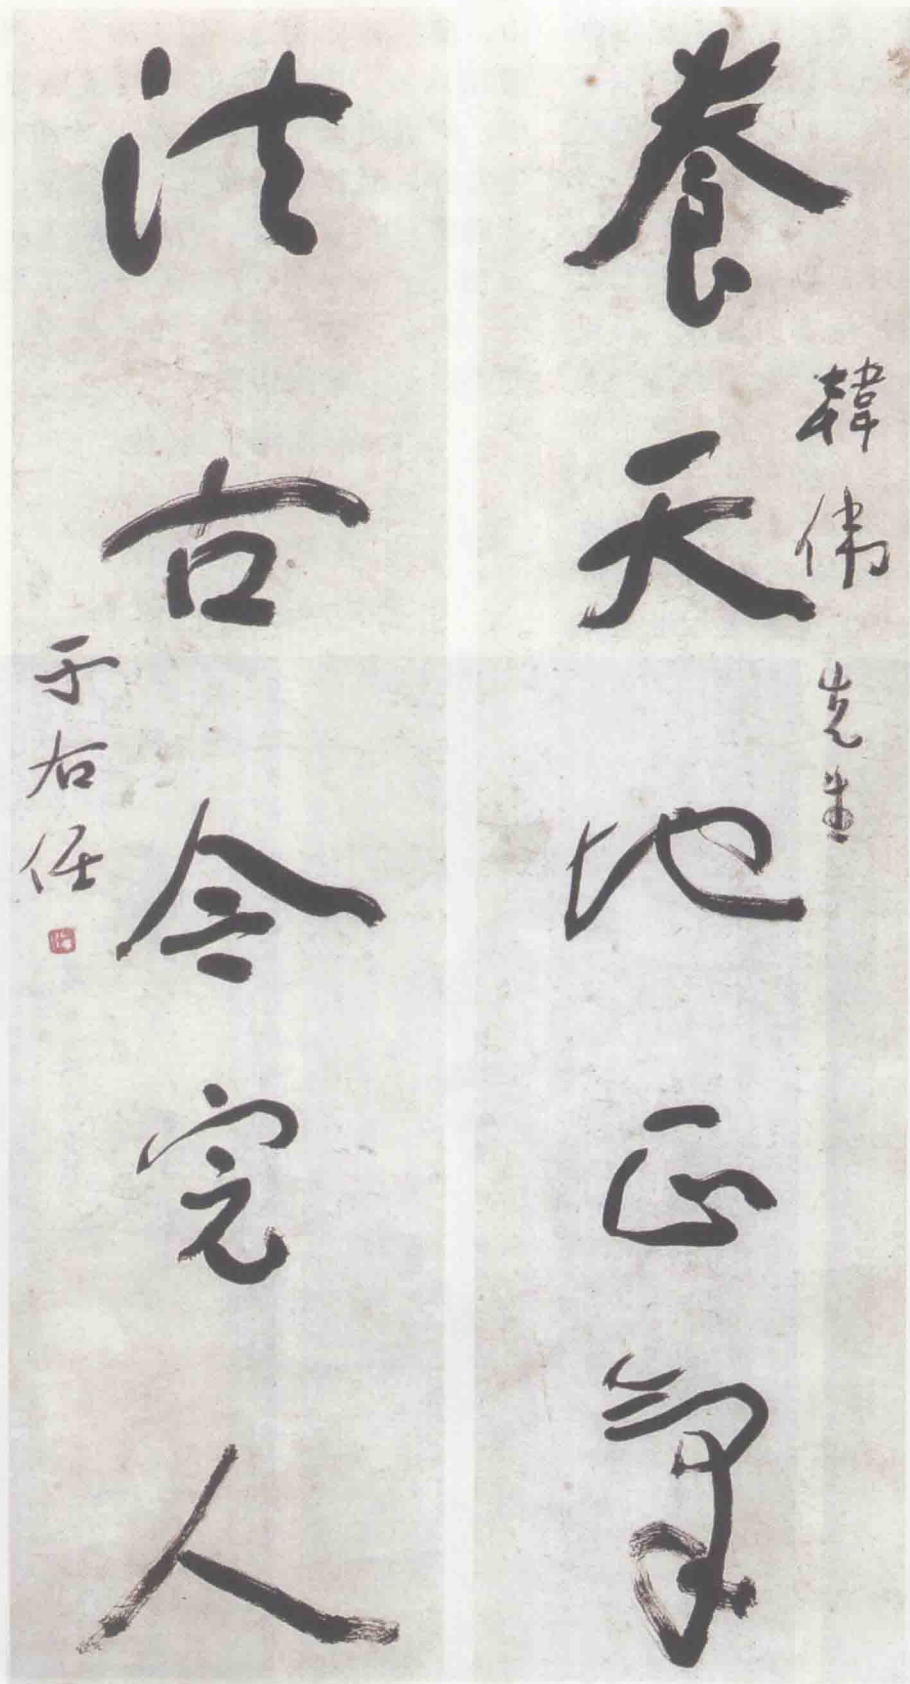 養天地正氣
韓偉先生
法古今完人
于右任